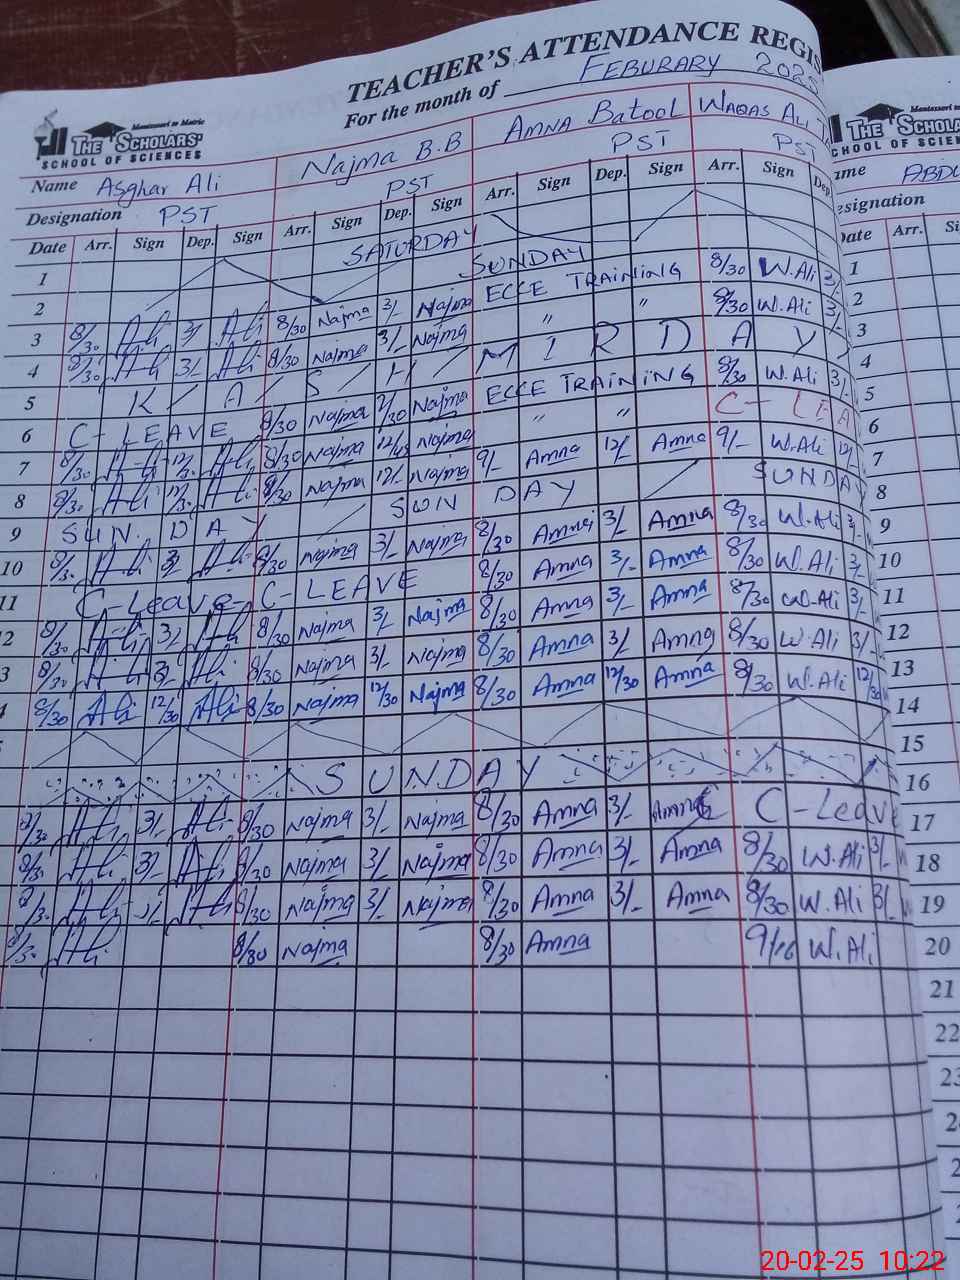 TEACHER'S ATTENDANCE REGIS
For the month of FEBURARY 2025
Montessori to Matric
THE SCHOLARS'
SCHOOL OF SCIENCES
Name Asghar Ali Najma B.B AMNA Batool WAQAS ALI
Designation PST PST PST PST
Date Arr. Sign Dep. Sign Arr. Sign Dep. Sign Arr. Sign Dep. Sign Arr. Sign Dep
1 SATURDAY
2 SUNDAY
3 8/30 Ali 3/ Ali 8/30 Najma 3/- Najma ECCE TRAINING 8/30 W.Ali 3/
4 8/30 Ali 3/- Ali 8/30 Najma 3/- Najma " " 8/30 W.Ali 3/-
5 K A S H M I R D A Y
6 C-LEAVE 8/30 Najma 2/30 Najma ECCE TRAINING 8/30 W.Ali 3/-
7 8/30 Ali 12/30 Ali 8/30 Najma 12/45 Najma " " C-LEA
8 8/30 Ali Ali 8/30 Najma 12/- Najma 9/- Amna 12/- Amna 9/- W.Ali 12/-
9 SUN. DAY SUN DAY SUNDAY
10 8/30 Ali 3/- Ali 8/30 Najma 3/- Najma 8/30 Amna 3/- Amna 8/30 W.Ali 3/-
11 C-Leave C-LEAVE 8/30 Amna 3/- Amna 8/30 W.Ali 3/-
12 8/30 Ali 3/- Ali 8/30 Najma 3/- Najma 8/30 Amna 3/- Amna 8/30 W.Ali 3/-
3 8/30 Ali 3/- Ali 8/30 Najma 3/- Najma 8/30 Amna 3/- Amna 8/30 W.Ali 3/-
4 8/30 Ali 12/30 Ali 8/30 Najma 12/30 Najma 8/30 Amna 12/30 Amna 8/30 W.Ali 12/30
SUNDAY
8/30 Ali 3/- Ali 8/30 Najma 3/- Najma 8/30 Amna 3/- Amna C-Leave
8/30 Ali 3/- Ali 8/30 Najma 3/- Najma 8/30 Amna 3/- Amna 8/30 W.Ali 3/-
8/30 Ali 3/- Ali 8/30 Najma 3/- Najma 8/30 Amna 3/- Amna 8/30 W.Ali 3/-
8/30 Ali 8/30 Najma 8/30 Amna 9/16 W.Ali
Montessori to
THE SCHOLA
SCHOOL OF SCIEN
ame ABDU
esignation
Date Arr. Si
1
2
3
4
5
6
7
8
9
10
11
12
13
14
15
16
17
18
19
20
21
22
23
20-02-25 10:22